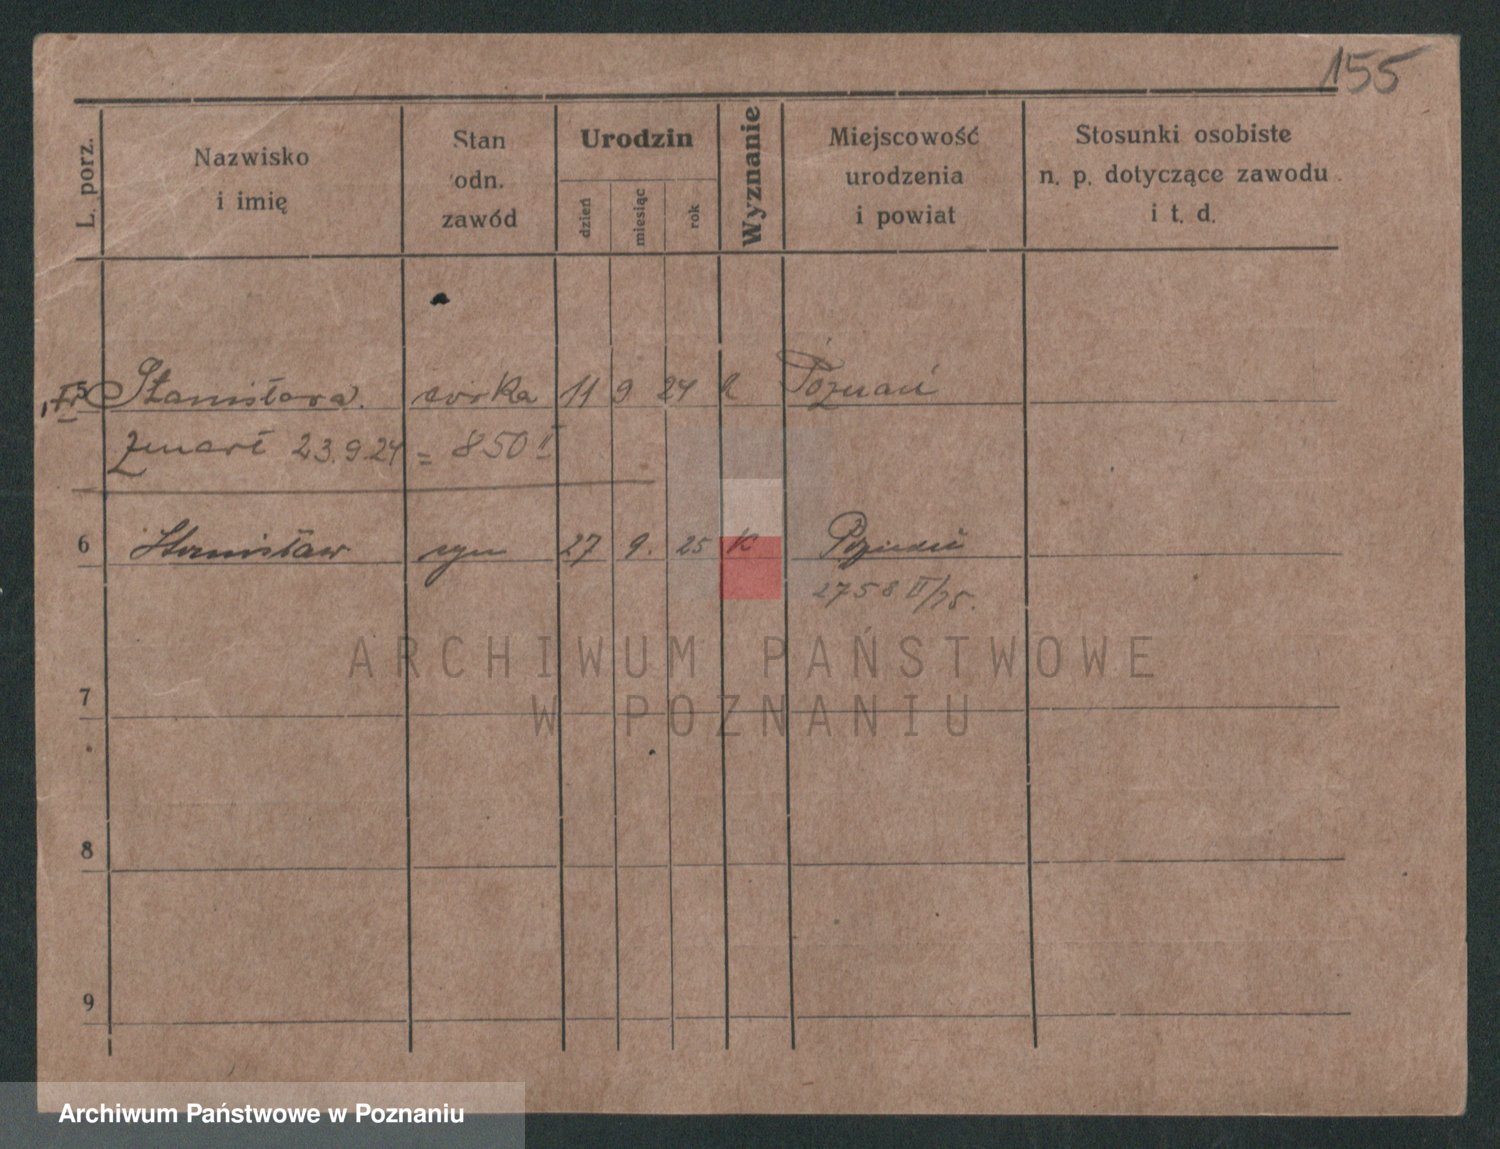 155
L. porz.
Nazwisko
i imię
Stan
odn.
zawód
Urodzin
dzień
miesiąc
rok
Wyznanie
Miejscowość
urodzenia
i powiat
Stosunki osobiste
n. p. dotyczące zawodu
i t. d.
5 Stanisława córka 11 9 24 k Poznań
zmarł 23.9.24 = 850 II
6 Stanisław syn 27 9. 25 K Poznań
2758 II/25.
ARCHIWUM PAŃSTWOWE
W POZNANIU
7
8
9
Archiwum Państwowe w Poznaniu